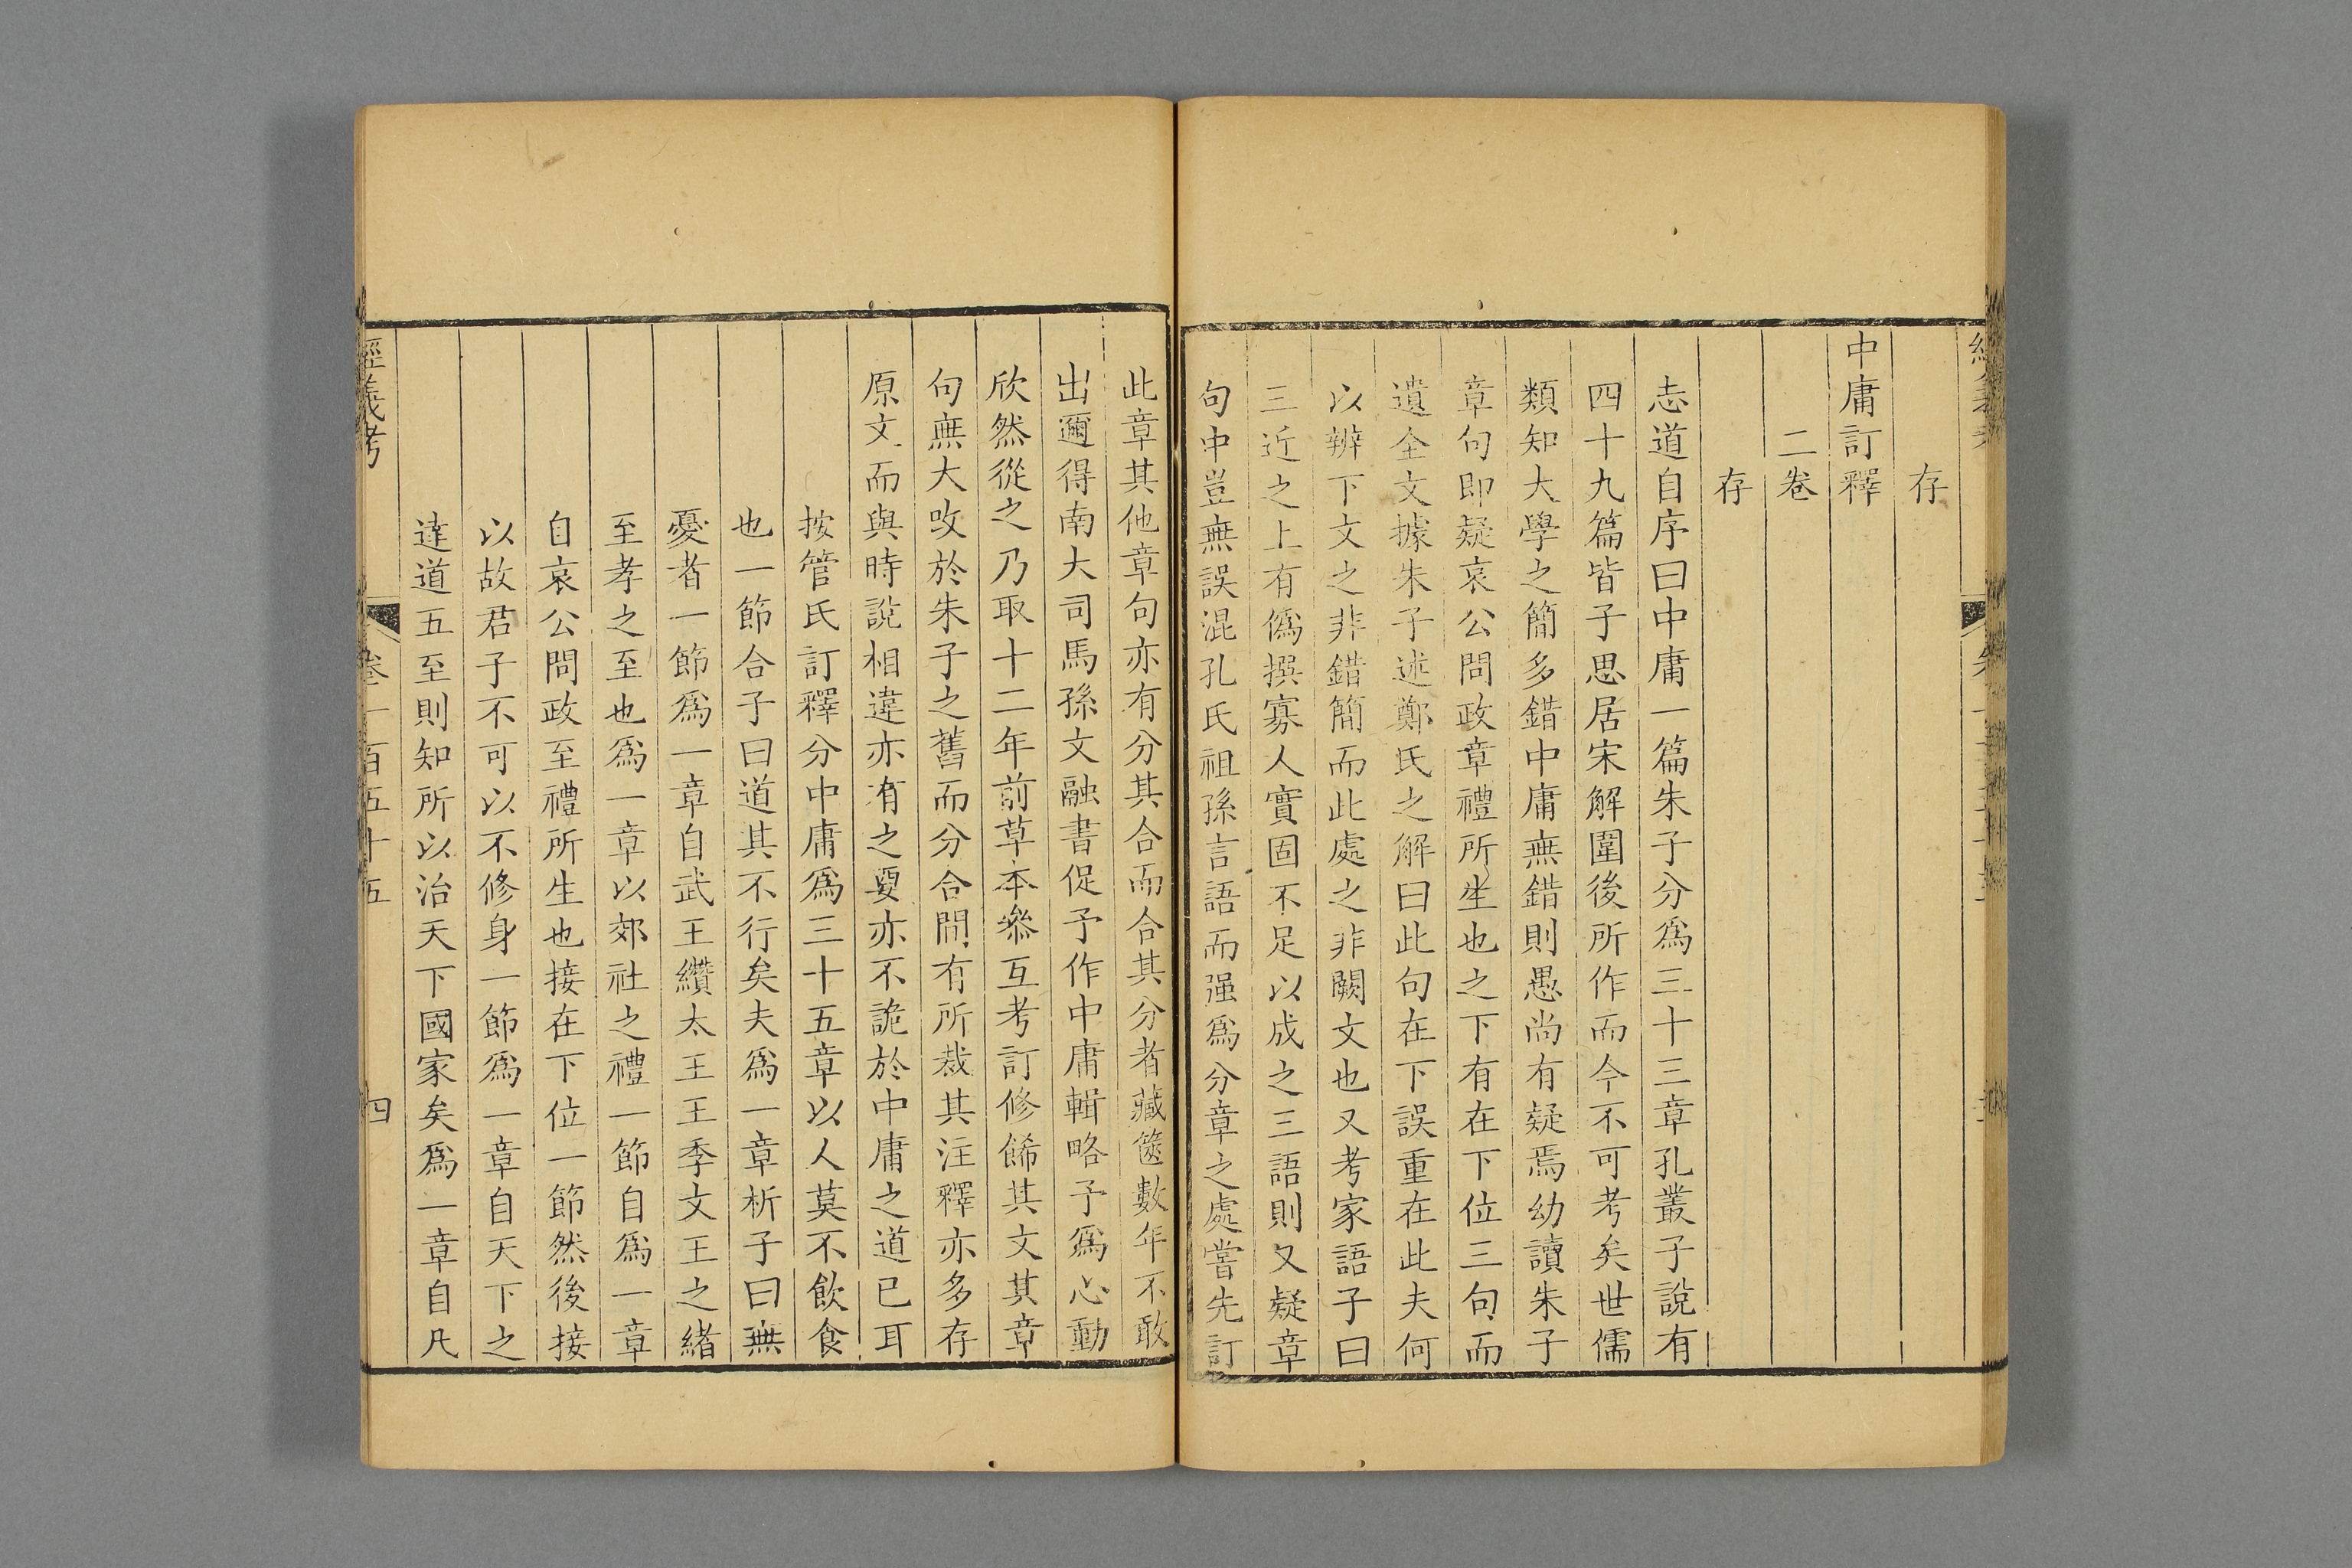 存
中庸訂釋
二卷
存
志道自序曰中庸一篇朱子分爲三十三章孔叢子說有
四十九篇皆子思居宋解圍後所作而今不可考矣世儒
類知大學之簡多錯中庸無錯則愚尚有疑焉幼讀朱子
章句即疑哀公問政章禮所生也之下有在下位三句而
遺全文據朱子述鄭氏之解曰此句在下誤重在此夫何
以辨下文之非錯簡而此處之非闕文也又考家語子曰
三近之上有僞撰寡人實固不足以成之三語則又疑章
句中豈無誤混孔氏祖孫言語而强爲分章之處嘗先訂
此章其他章句亦有分其合而合其分者藏篋數年不敢
出邇得南大司馬孫文融書促予作中庸輯略予爲心動
欣然從之乃取十二年前草本叅互考訂修餙其文其章
句無大攺於朱子之舊而分合間有所裁其注釋亦多存
原文而與時說相違亦有之要亦不詭於中庸之道已耳
按管氏訂釋分中庸爲三十五章以人莫不飲食
也一節合子曰道其不行矣夫爲一章析子曰無
憂者一節爲一章自武王纘太王王季文王之緒
至孝之至也爲一章以郊社之禮一節自爲一章
自哀公問政至禮所生也接在下位一節然後接
以故君子不可以不修身一節爲一章自天下之
達道五至則知所以治天下國家矣爲一章自凡
經義考
卷一百五十五
四